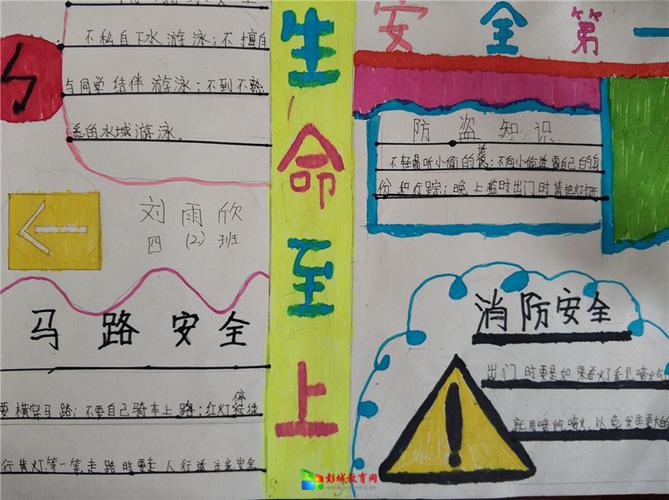 不私自下水游泳；不擅自
与同学结伴游泳；不到不熟
悉的水域游泳。
刘雨欣
四（2）班
马路安全
要横穿马路；不要自己骑车上路；红灯停绿
行黄灯等一等，走路时要走人行道注意安全
生命至上
安全第一
防盗知识
不轻易听小偷的谎；不向小偷透露自己的身
份和行踪；晚上临时出门时
消防安全
出门时要是如果着火看见
以免发生更大的
彭城教育网